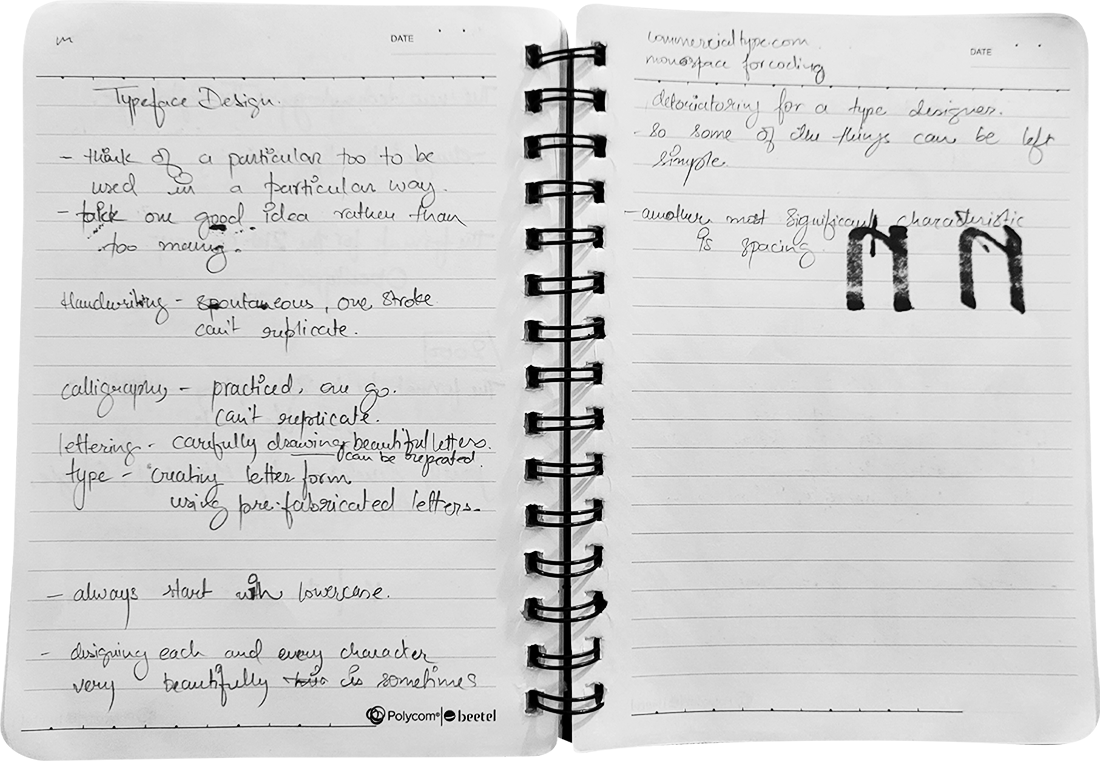 m
DATE
Typeface Design.
- think of a particular too to be
used in a particular way.
- take one good idea rather than
too many.
Handwriting - spontaneous, one stroke
can't replicate.
calligraphy - practiced, one go.
can't replicate.
lettering - carefully drawing beautiful letters.
can be repeated.
type - creating letter form
using pre-fabricated letters.
- always start with lowercase.
- designing each and every character
very beautifully this is sometimes
Polycom | beetel
commercialtype.com
monospace for coding
DATE
detoriatoring for a type designer.
- so some of the things can be left
simple
- another most significant characteristic
is spacing.
n n